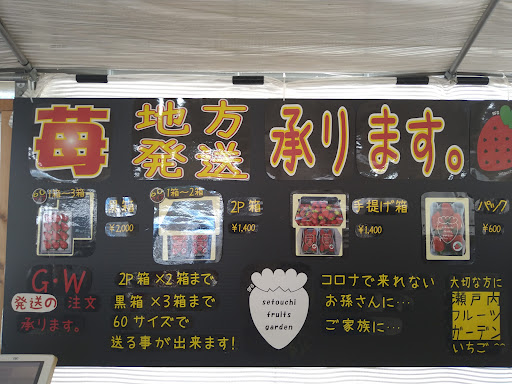 苺 地方発送 承ります。
1箱〜3箱
黒箱
¥2,000
1箱〜2箱
2P箱
¥1,400
手提げ箱
¥1,400
パック
¥600
G・W
発送の注文
承ります。
2P箱×2箱まで
黒箱×3箱まで
60サイズで
送る事が出来ます!
setouchi
fruits
garden
コロナで来れない
お孫さんに…
ご家族に…
大切な方に
瀬戸内
フルーツ
ガーデン
いちご